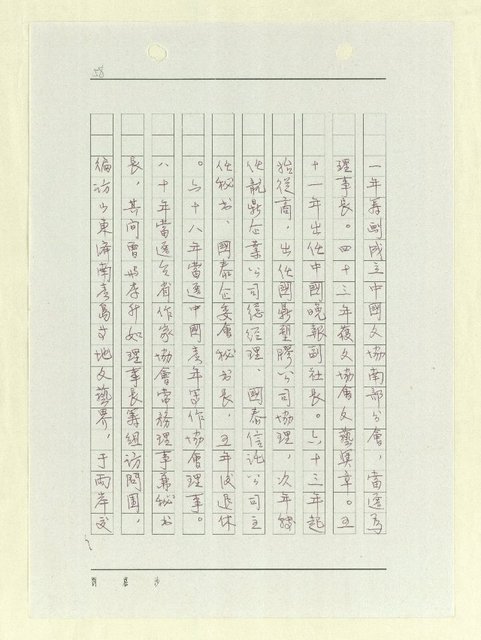 38
一年籌劃成立中國文協南部分會，當選為
理事長。四十三年獲文協會文藝獎章。五
十一年出任中國晚報副社長。六十三年起
始從商，出任國鼎塑膠公司協理，次年轉
任龍鼎企業公司總經理、國泰信託公司主
任秘书、國泰企委會秘书長，五年後退休
。六十八年當選中國青年寫作協會理事。
八十年當選台省作家協會常務理事兼秘书
長，其间曾
理事長籌组訪問團，
编訪山東濟南青島等地文藝界，于兩岸文